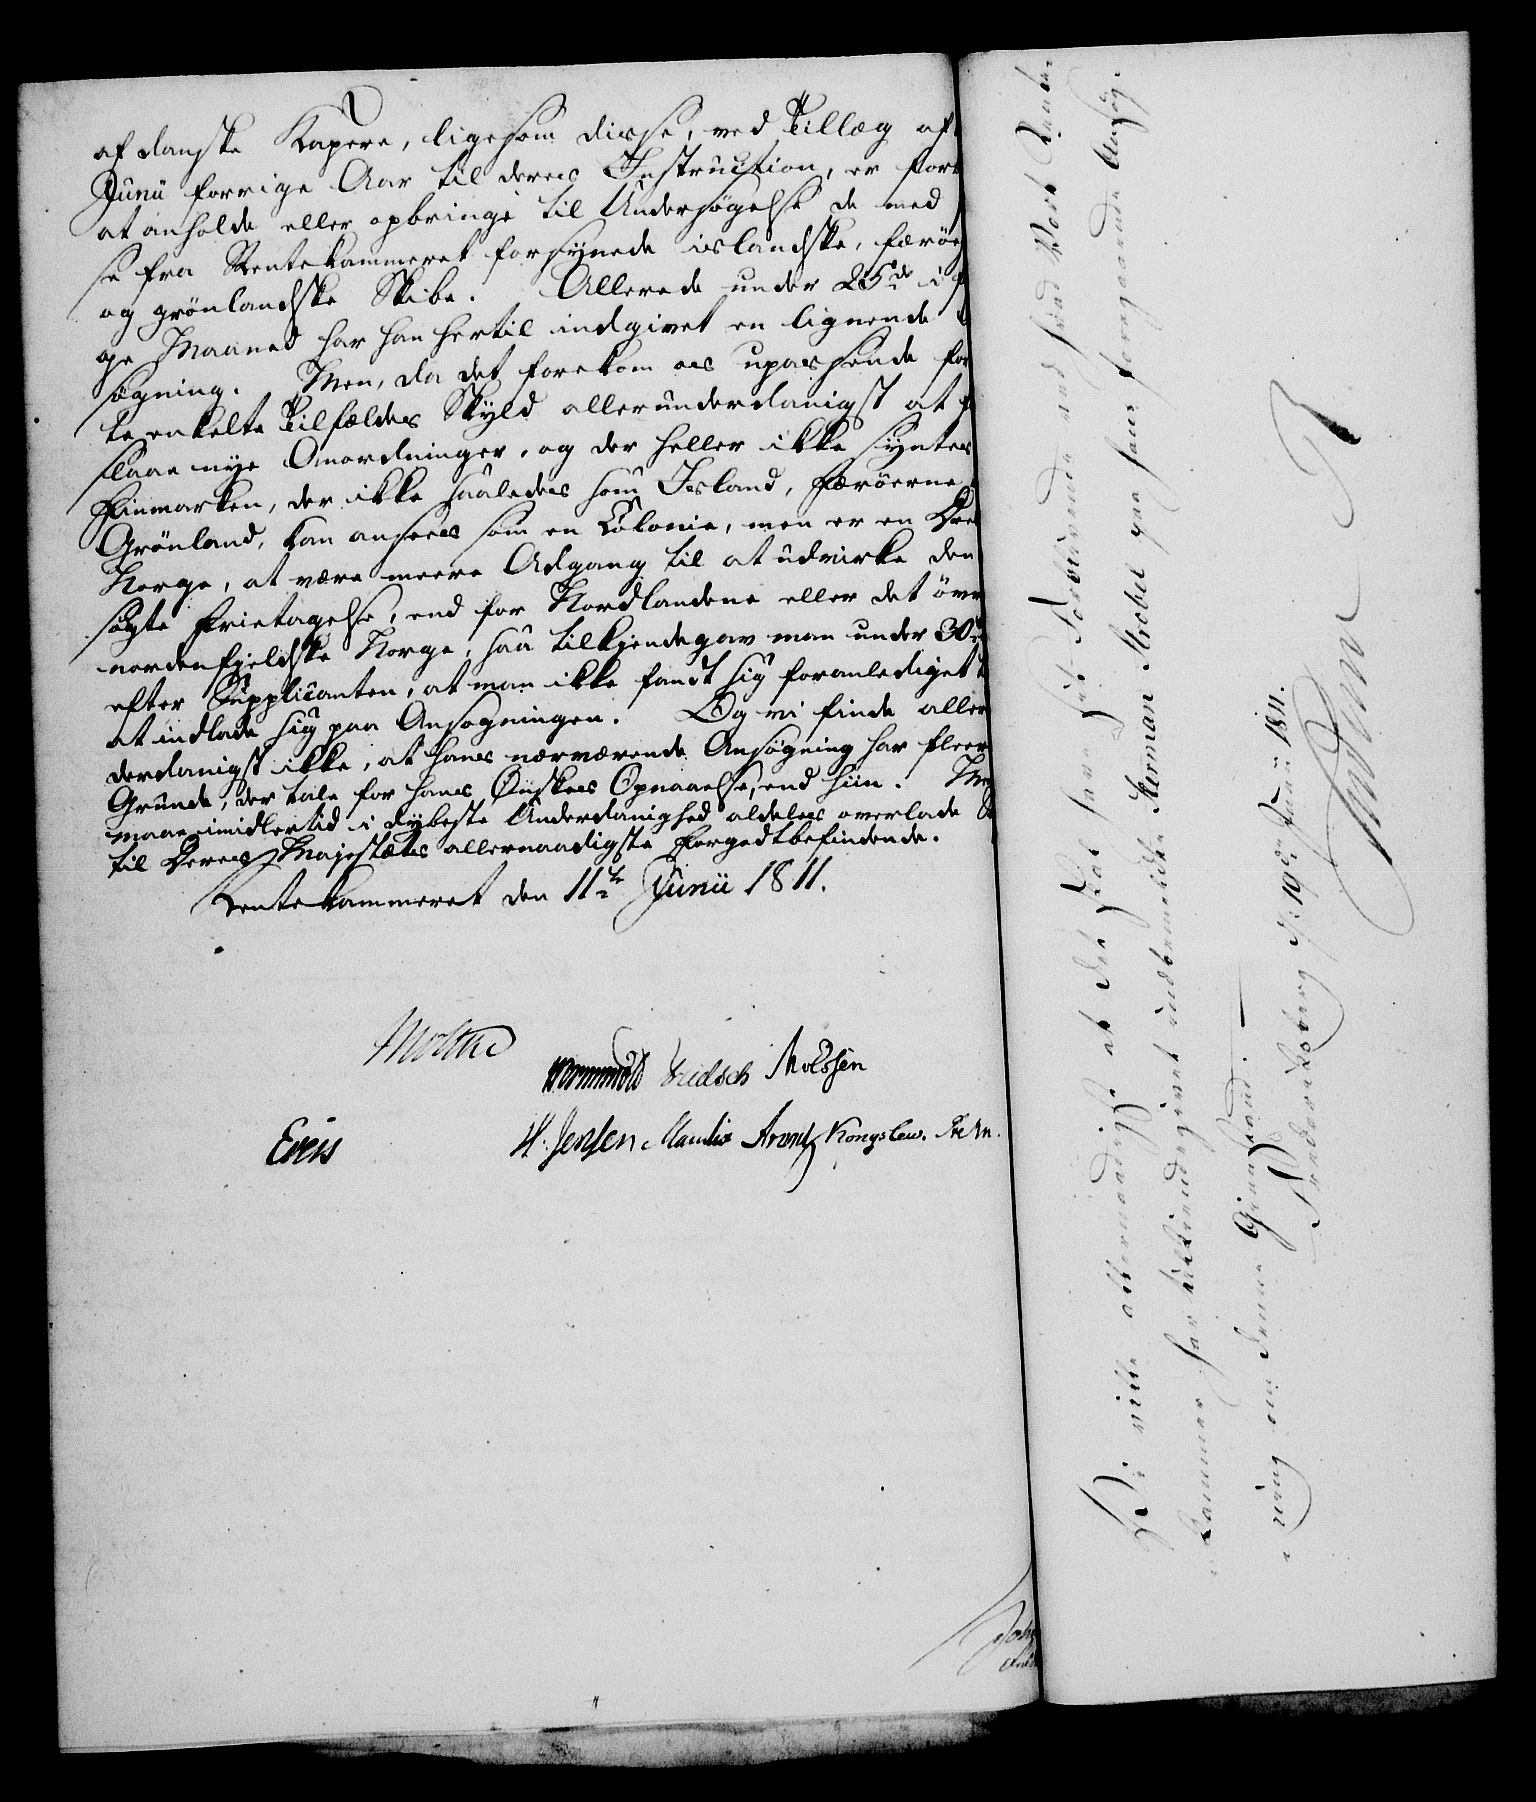 af danske Kapere, ligesom disse, ved Tillæg af
Junii forrige Aar til deres Instruction, er for
at anholde eller opbringe til Undersøgelse de med
se fra Rentekammeret forsÿnede islandske, færöe
og grönlandske Skibe. Allerede under 25de i f
ge Maaned har han hertil indgivet en lignende
søgning. Men, da det forekom os upassende for
te enkelte Tilfældes Skÿld allerunderdanigst at f
slaae nÿe Anordninger, og der heller ikke sÿntes
Finmarken, der ikke saaledes som Island, Færöerne
Grönland, kan ansees som en Colonie, men er en Dee
Norge, at være meere Adgang til at udvirke den
søgte Fritagelse, end for Nordlandene eller det övr
nordenfjeldske Norge, saa tilkjendegav man under 30
efter Supplicanten, at man ikke fandt sig foranlediget t
at indlade sig paa Ansøgningen. Og vi finde aller
derdanigst ikke, at hans nærværende Ansøgning har fleer
Grunde, der tale for hans Ønskes Opnaaelse, end hiin.
maae imidlertid i dÿbeste Underdanighed aldeles overlade
til Deres Majestæts allernaadigste Forgodtbefindende.
Rentekammeret den 11te Junii 1811.
Moltke
Wormskiold Knudsen
H. Jensen Arentz Kongslew.
Vi ville allernaadigst at det skal have sit Forblivende ved hvad Vort Rente-
kammer har tilkiendegivet indbemeldte Herman Strobel paa hans foregaaende Ansøg-
ning om denne Gienstand.
Frederiksberg d: 19de Junii 1811.
Frederik R